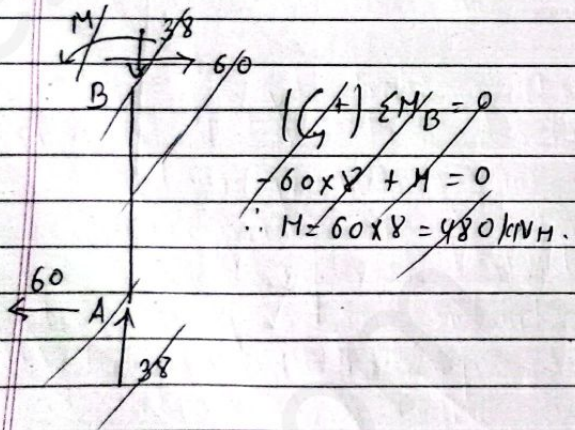 M 38
60
B
(+) ΣM_B = 0
-60×8 + M = 0
∴ M = 60×8 = 480 kNM.
60
A
38